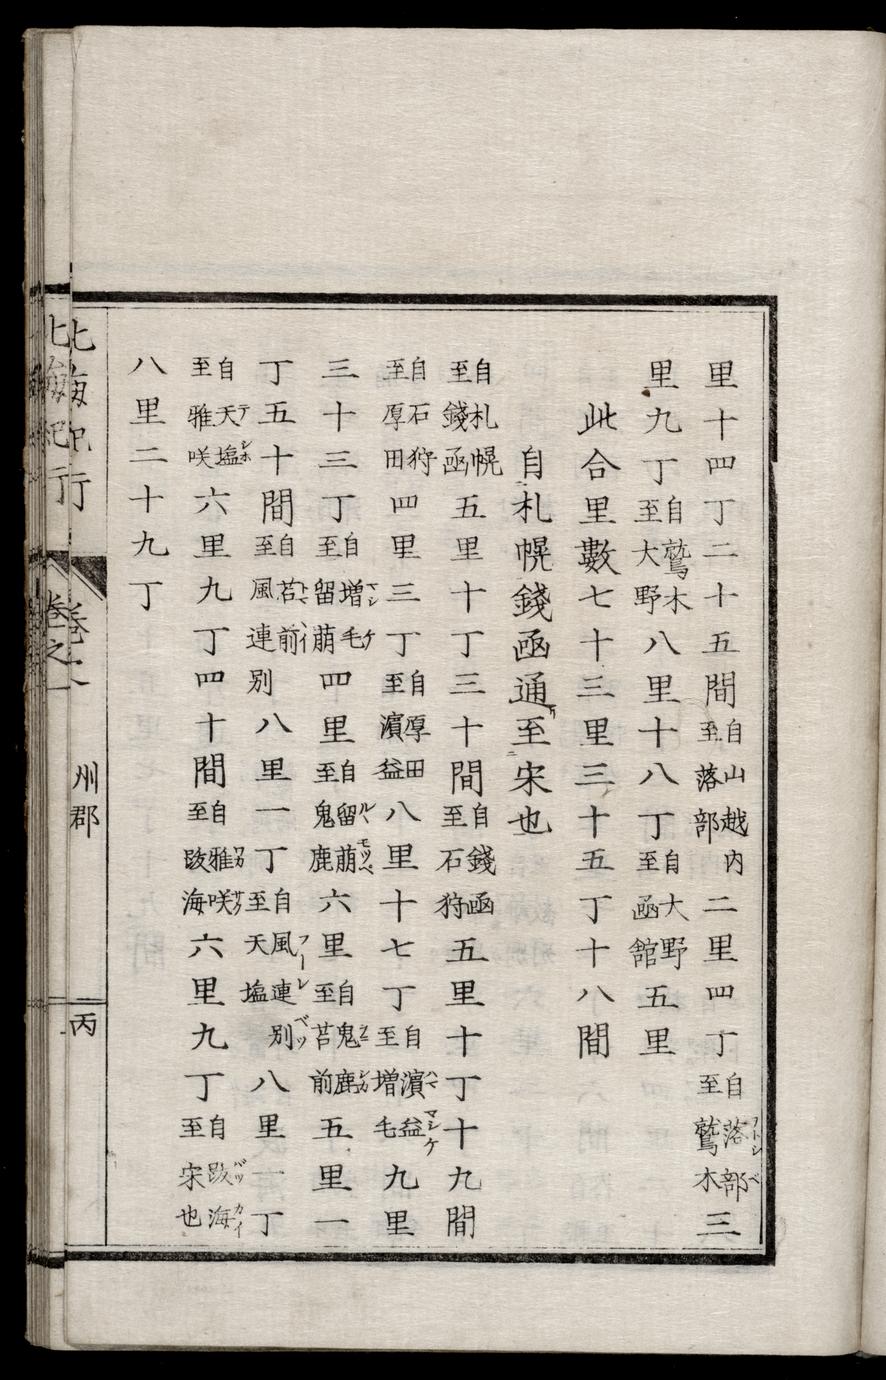 里十四丁二十五間自山越内至落部二里四丁自落部至鷲木三
フトシベ
里九丁自鷲木至大野八里十八丁自大野至函館五里
此合里數七十三里三十五丁十八間
自札幌錢函通至宋也
自札幌至錢函五里十丁三十間自錢函至石狩五里十丁十九間
自石狩至厚田四里三丁自厚田至濵益八里十七丁自濵益至増毛九里
ハママシケ
三十三丁自増毛至留萠四里自留萠至鬼鹿六里自鬼鹿至苫前五里一
マシケ
ルヽモツペ
ヲニシカ
丁五十間自苫前至風連別八里一丁自風連別至天塩八里一丁
トママイ
フーレベツ
自天塩至雅咲六里九丁四十間自雅咲至䟦海六里九丁自䟦海至宋也
テシホ
ワカサク
バツカイ
八里二十九丁
北海紀行
卷之一
州郡
丙